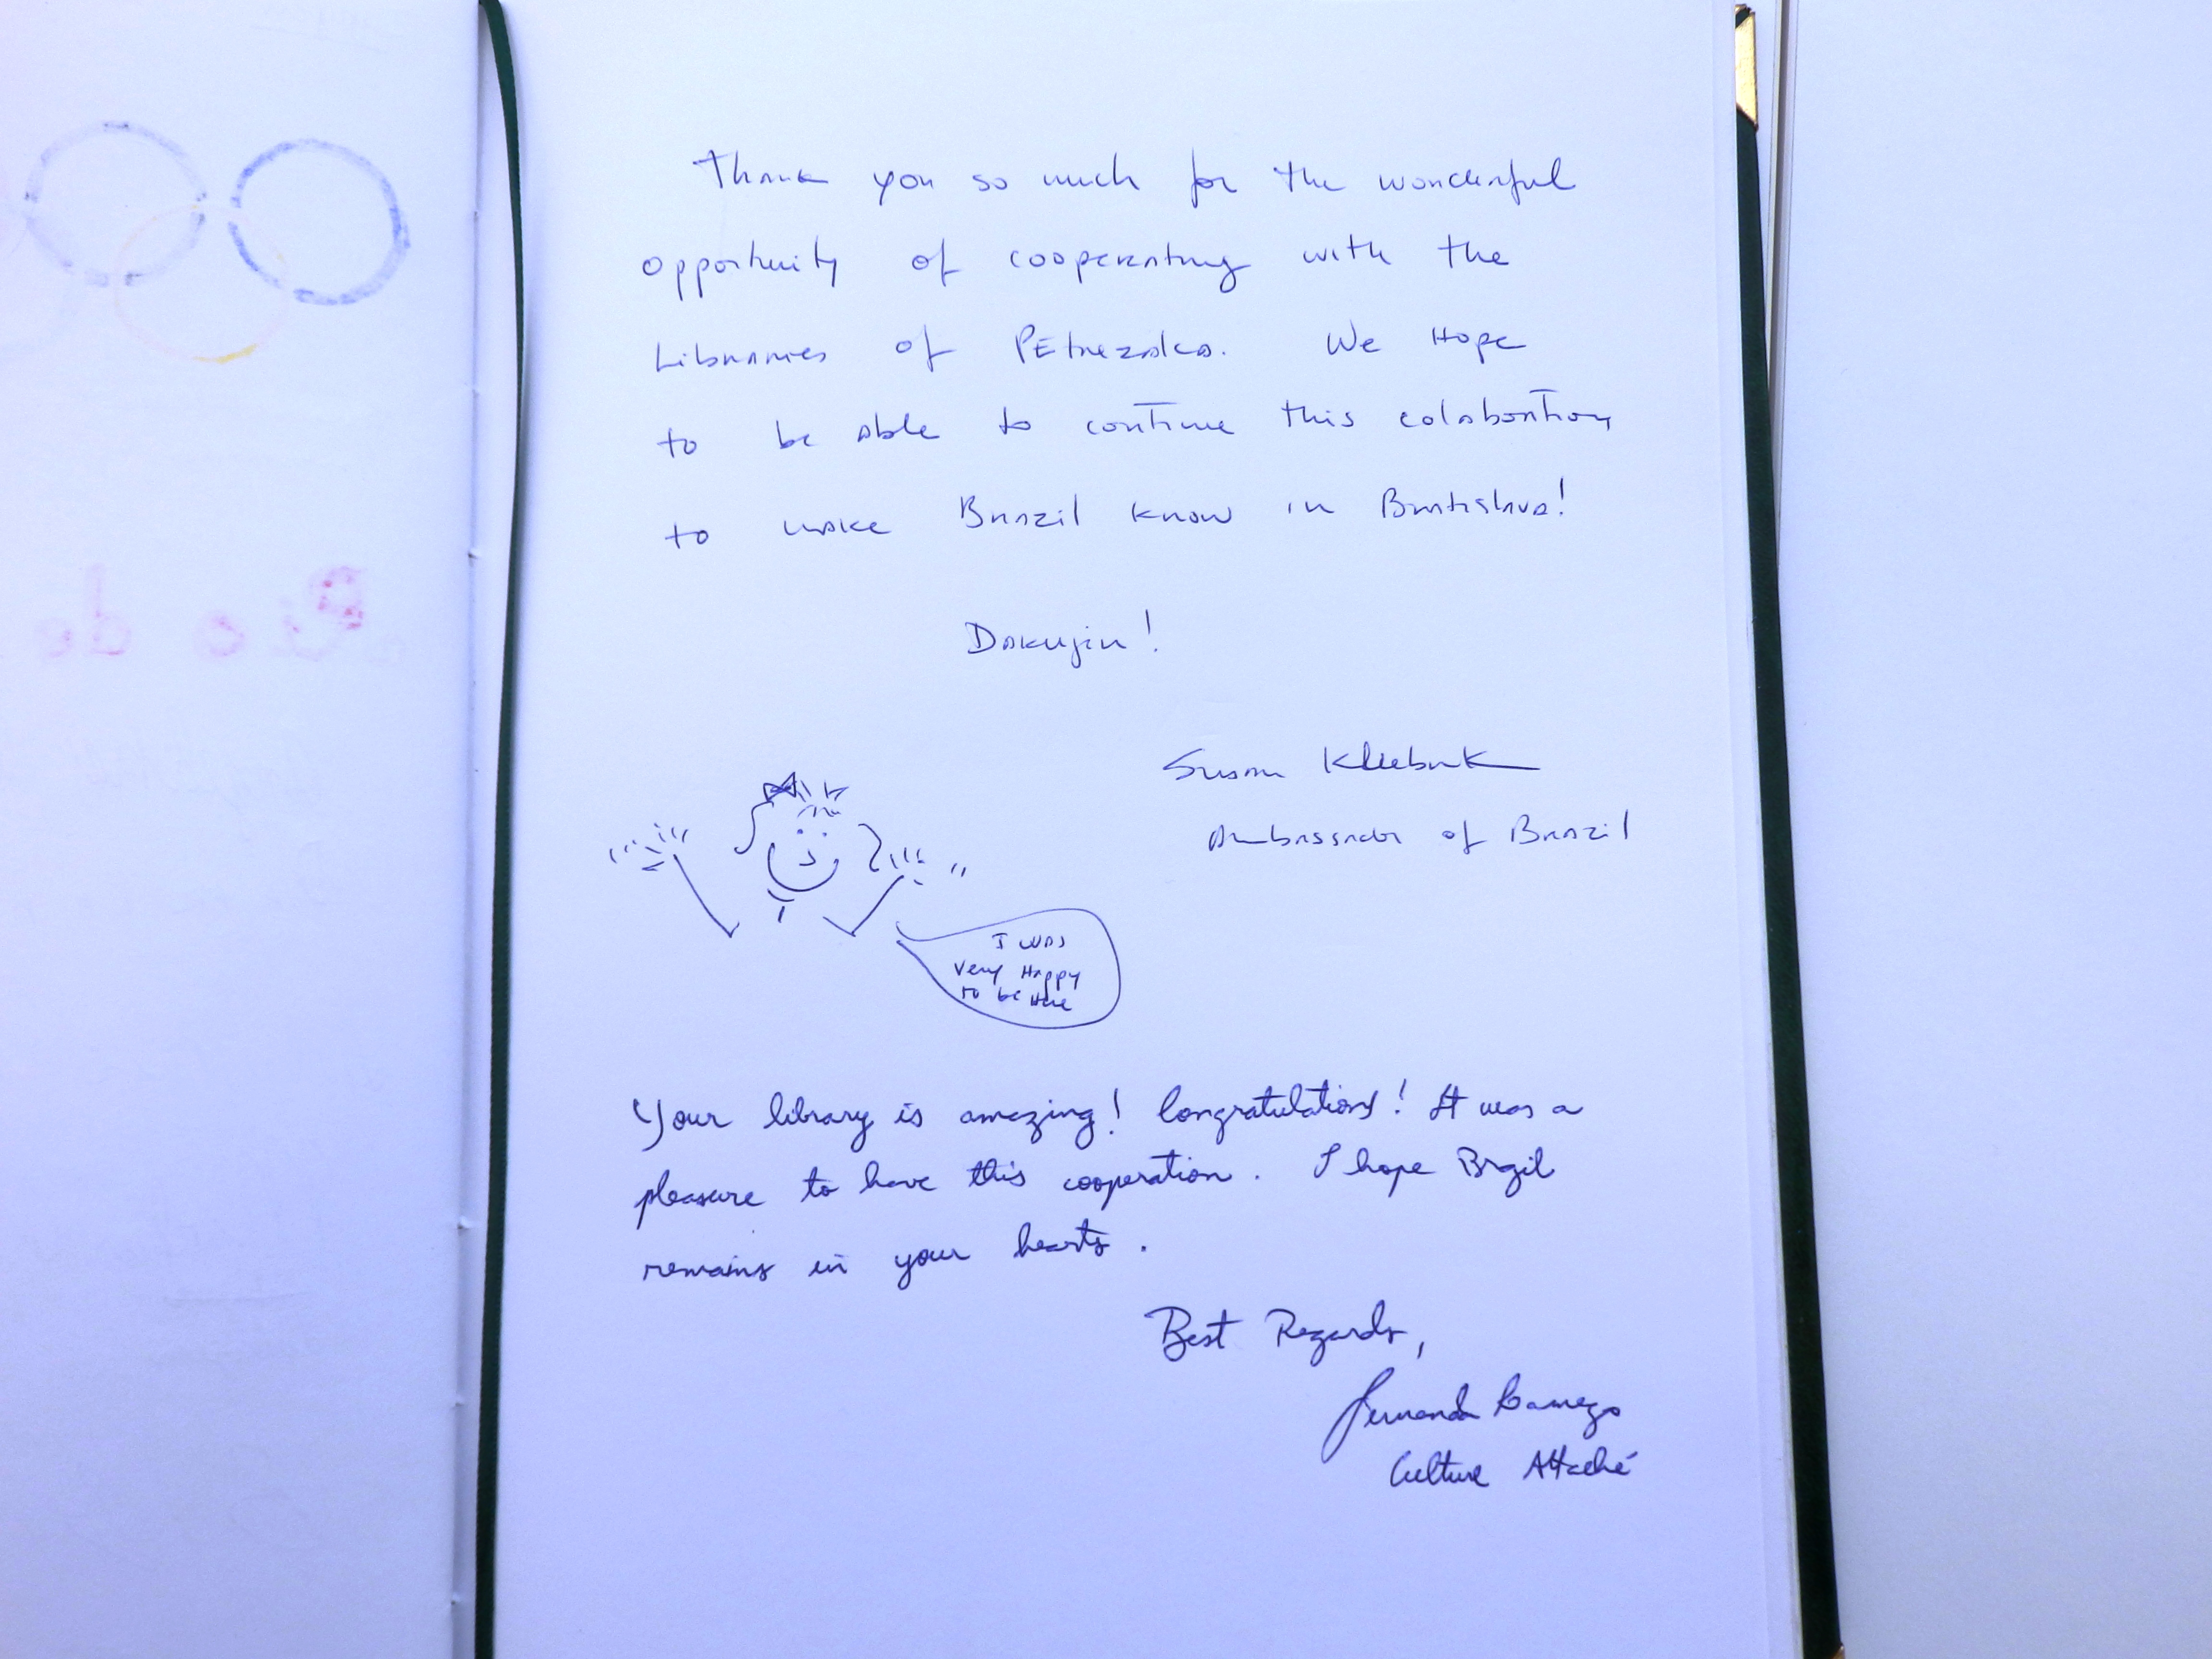 Thank you so much for the wonderful
opportunity of cooperating with the
Libraries of Petrezalca. We Hope
to be able to continue this colaboration
to make Brazil know in Bratislava!
Dakujin!
Susan Kleebank
Ambassador of Brazil
I was
very Happy
to be Here
Your library is amazing! Congratulations! It was a
pleasure to have this cooperation. I hope Brazil
remains in your hearts.
Best Regards,
Fernanda Gamego
Culture Attaché